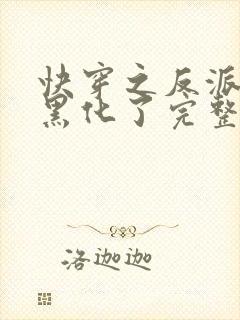 快穿之反派
黑化了完整
洛迦迦